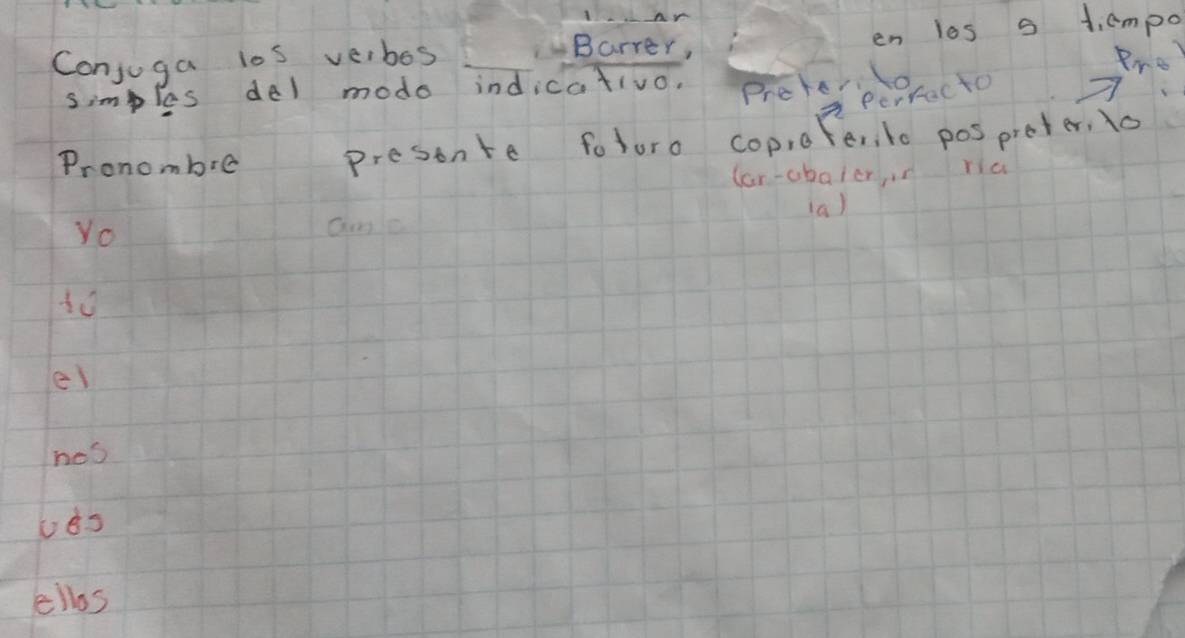 Barrer,
Conjuga los verbos en los 5 tiempo
simples del modo indicativo. Preterito perfecto Pre
Pronombre presente foturo copreterito pospreterito
(ar-abaler,ir ria
ia)
yo am
tú
el
nos
uds
ellos